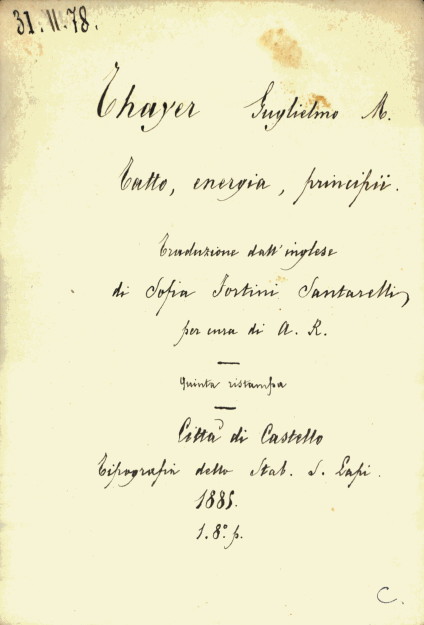 31.II.78.
Thayer Guglielmo M.
Tatto, energia, principii.
Traduzione dall'inglese
di Sofia Fortini Santarelli,
per cura di A. R.
Quinta ristampa
Città di Castello
Tipografia dello Stab. S. Lapi.
1885.
1. 8.° p.
C.